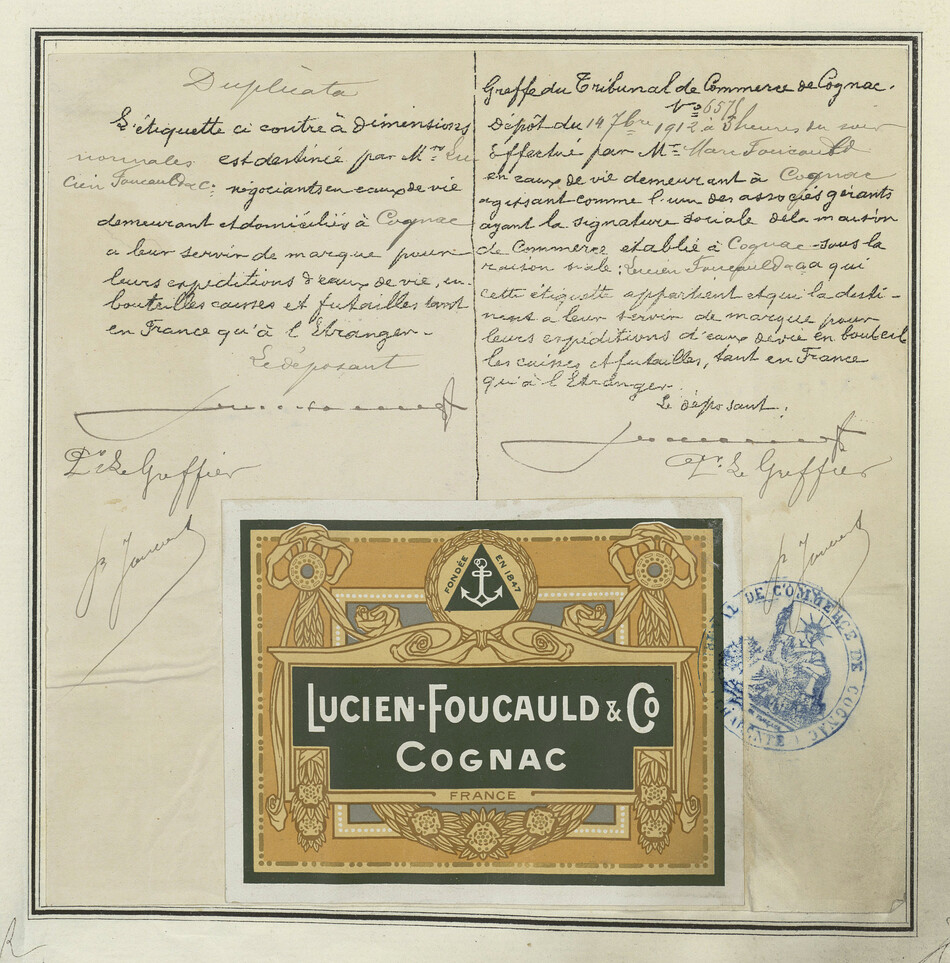 Duplicata
L'étiquette ci contre à dimensions
normales est destinée par Mrs Lu-
cien Foucauld & Co négociants en eaux de vie
demeurant et domiciliés à Cognac
a leur servir de marque pour
leurs expéditions d'eaux de vie, en
bouteilles caisses et futailles tant
en France qu'à l'Etranger.
Le déposant
Pr Le Greffier
Greffe du Tribunal de Commerce de Cognac.
No 6575
Dépôt du 14 7bre 1912 à 3 heures du soir
Effectué par Mr Marc Foucauld
en eaux de vie demeurant à Cognac
agissant comme l'un des associés gérants
ayant la signature sociale de la maison
de Commerce etablie à Cognac sous la
raison sociale: Lucien Foucauld & Co a qui
cette étiquette appartient et qui la desti-
nent a leur servir de marque pour
leurs expéditions d'eaux de vie en bouteil
les caisses et futailles, tant en France
qu'à l'Etranger.
Le déposant:
Pr Le Greffier
FONDÉE EN 1847
LUCIEN-FOUCAULD & Co
COGNAC
FRANCE
DE COMMERCE DE COGNAC